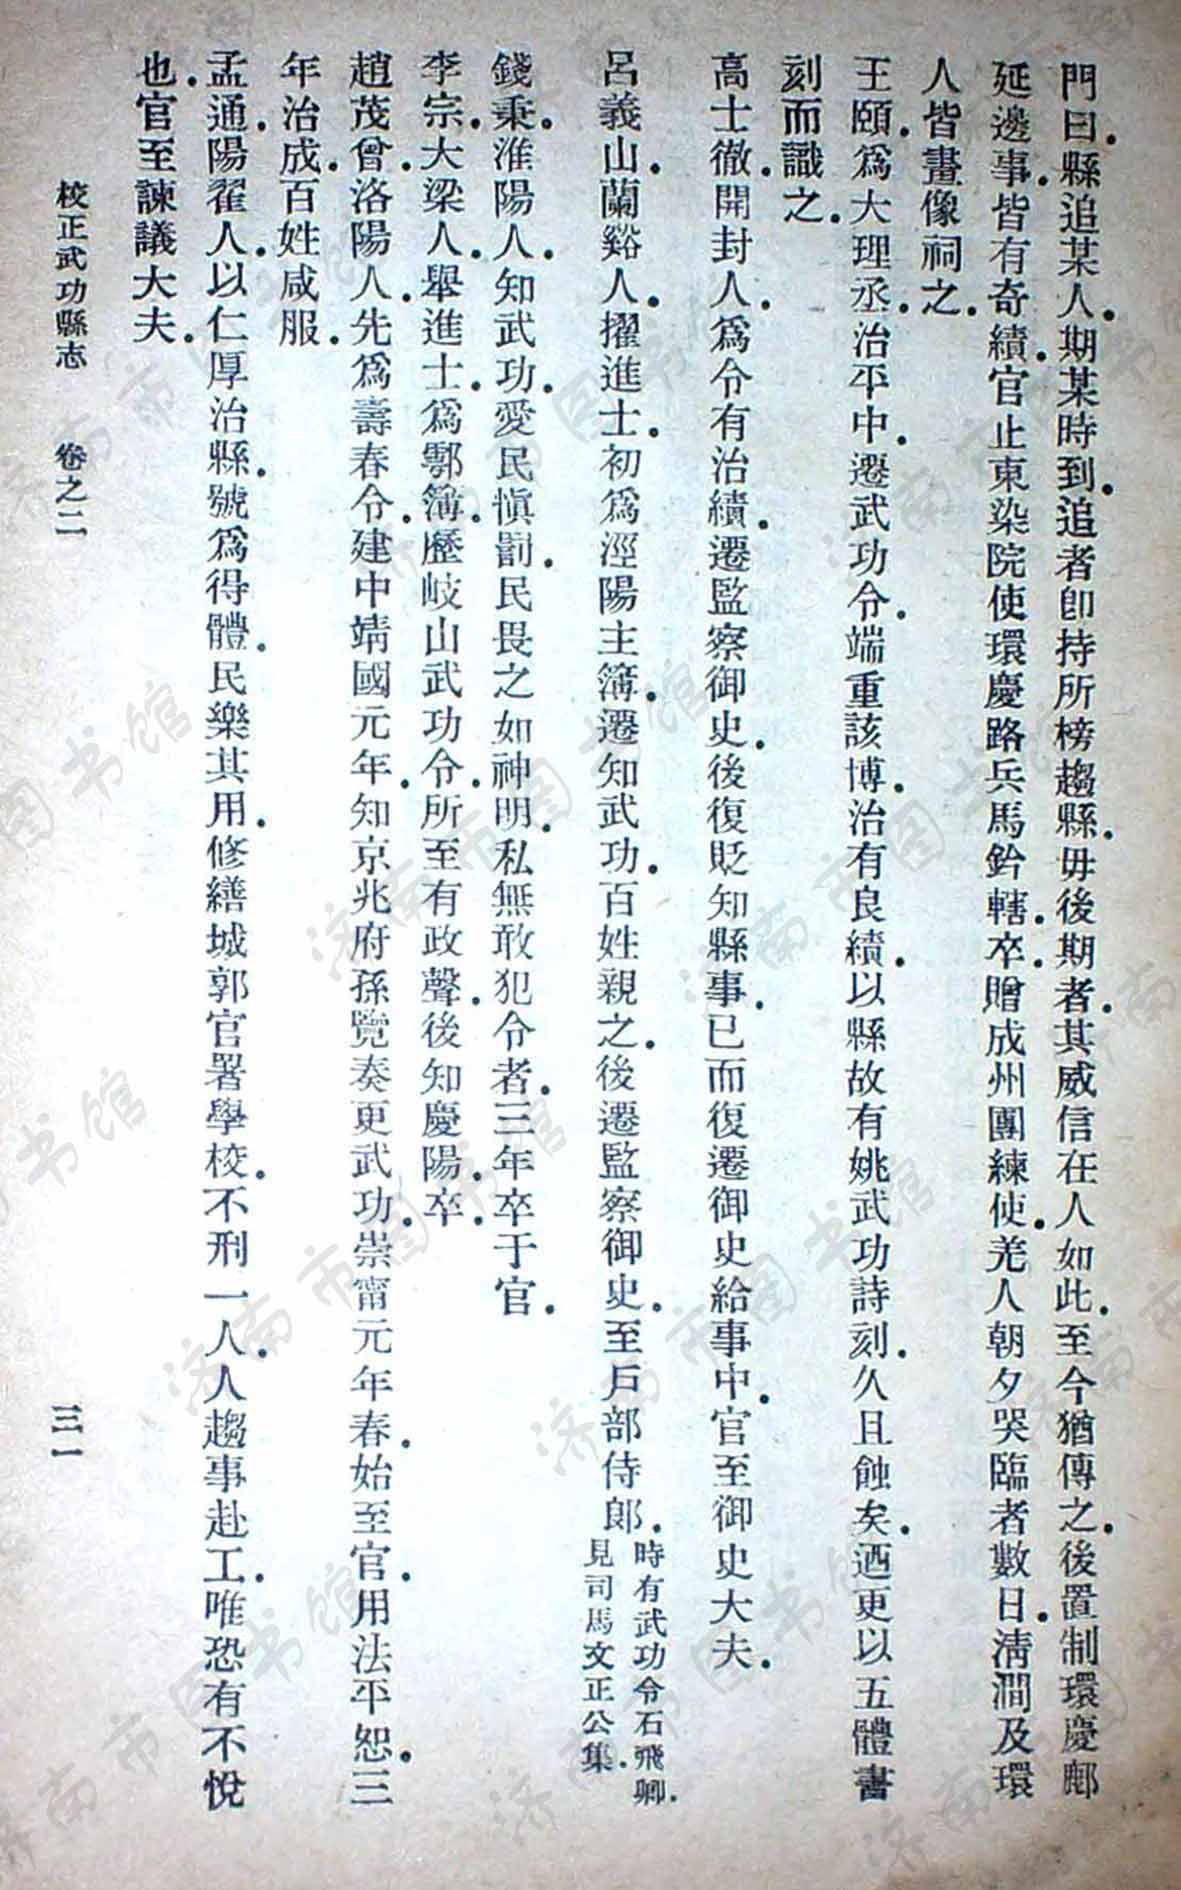 門曰.縣追某人.期某時到.追者卽持所榜趨縣.毋後期者.其威信在人如此.至今猶傳之.後置制環慶鄜
延邊事.皆有奇績.官止東染院使環慶路兵馬鈐轄.卒.贈成州團練使.羌人朝夕哭臨者數日.淸澗及環
人皆畫像祠之.
王頤.爲大理丞.治平中.遷武功令.端重該博.治有良績.以縣故有姚武功詩刻.久且蝕矣.迺更以五體書
刻而識之.
高士徹.開封人.爲令有治績.遷監察御史.後復貶知縣事.已而復遷御史給事中.官至御史大夫.
呂義山.蘭谿人.擢進士.初爲涇陽主簿.遷知武功.百姓親之.後遷監察御史.至戶部侍郎.時有武功令石飛卿.見司馬文正公集.
錢秉.淮陽人.知武功.愛民愼罰.民畏之如神明.私無敢犯令者.三年卒于官.
李宗.大梁人.舉進士.爲鄠簿.歷岐山武功令.所至有政聲.後知慶陽.卒.
趙茂曾.洛陽人.先爲壽春令.建中靖國元年.知京兆府孫覽奏更武功.崇甯元年春.始至官.用法平恕.三
年治成.百姓咸服.
孟通.陽翟人.以仁厚治縣.號爲得體.民樂其用.修繕城郭官署學校.不刑一人.人趨事赴工.唯恐有不悅
也.官至諫議大夫.
校正武功縣志　卷之二　三一
济南市图书馆